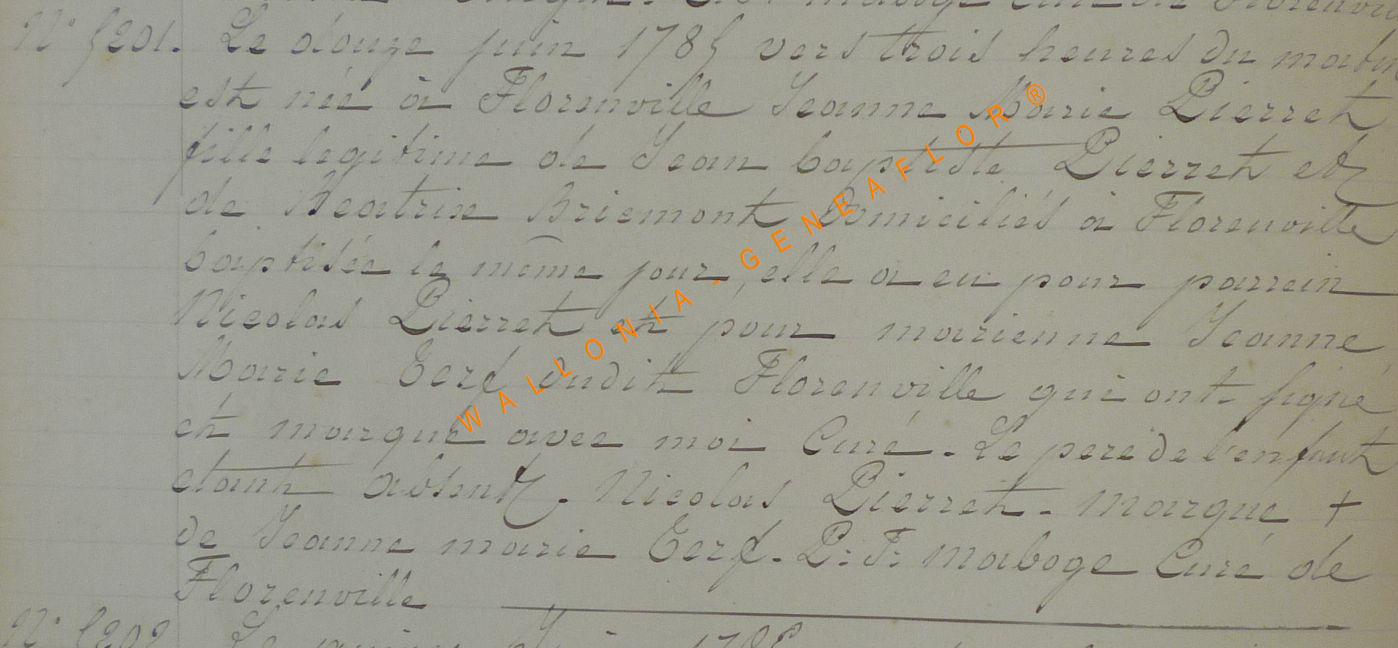 N° 5201. Le douze juin 1785 vers trois heures du matin
est née à Florenville Jeanne Marie Pierret
fille legitime de Jean baptiste Pierret et
de Beatrix Briemont domiciliés à Florenville
baptisée le même jour, elle a eu pour parrein
Nicolas Pierret et pour marienne Jeanne
Marie Cerf dudit Florenville qui ont signé
et marqué avec moi Curé. Le pere de l'enfant
etant absent. Nicolas Pierret. Marque +
de Jeanne marie Cerf. P. F. Maboge Curé de
Florenville
N° 5202. Le
WALLONIA - GENEAFLOR ®